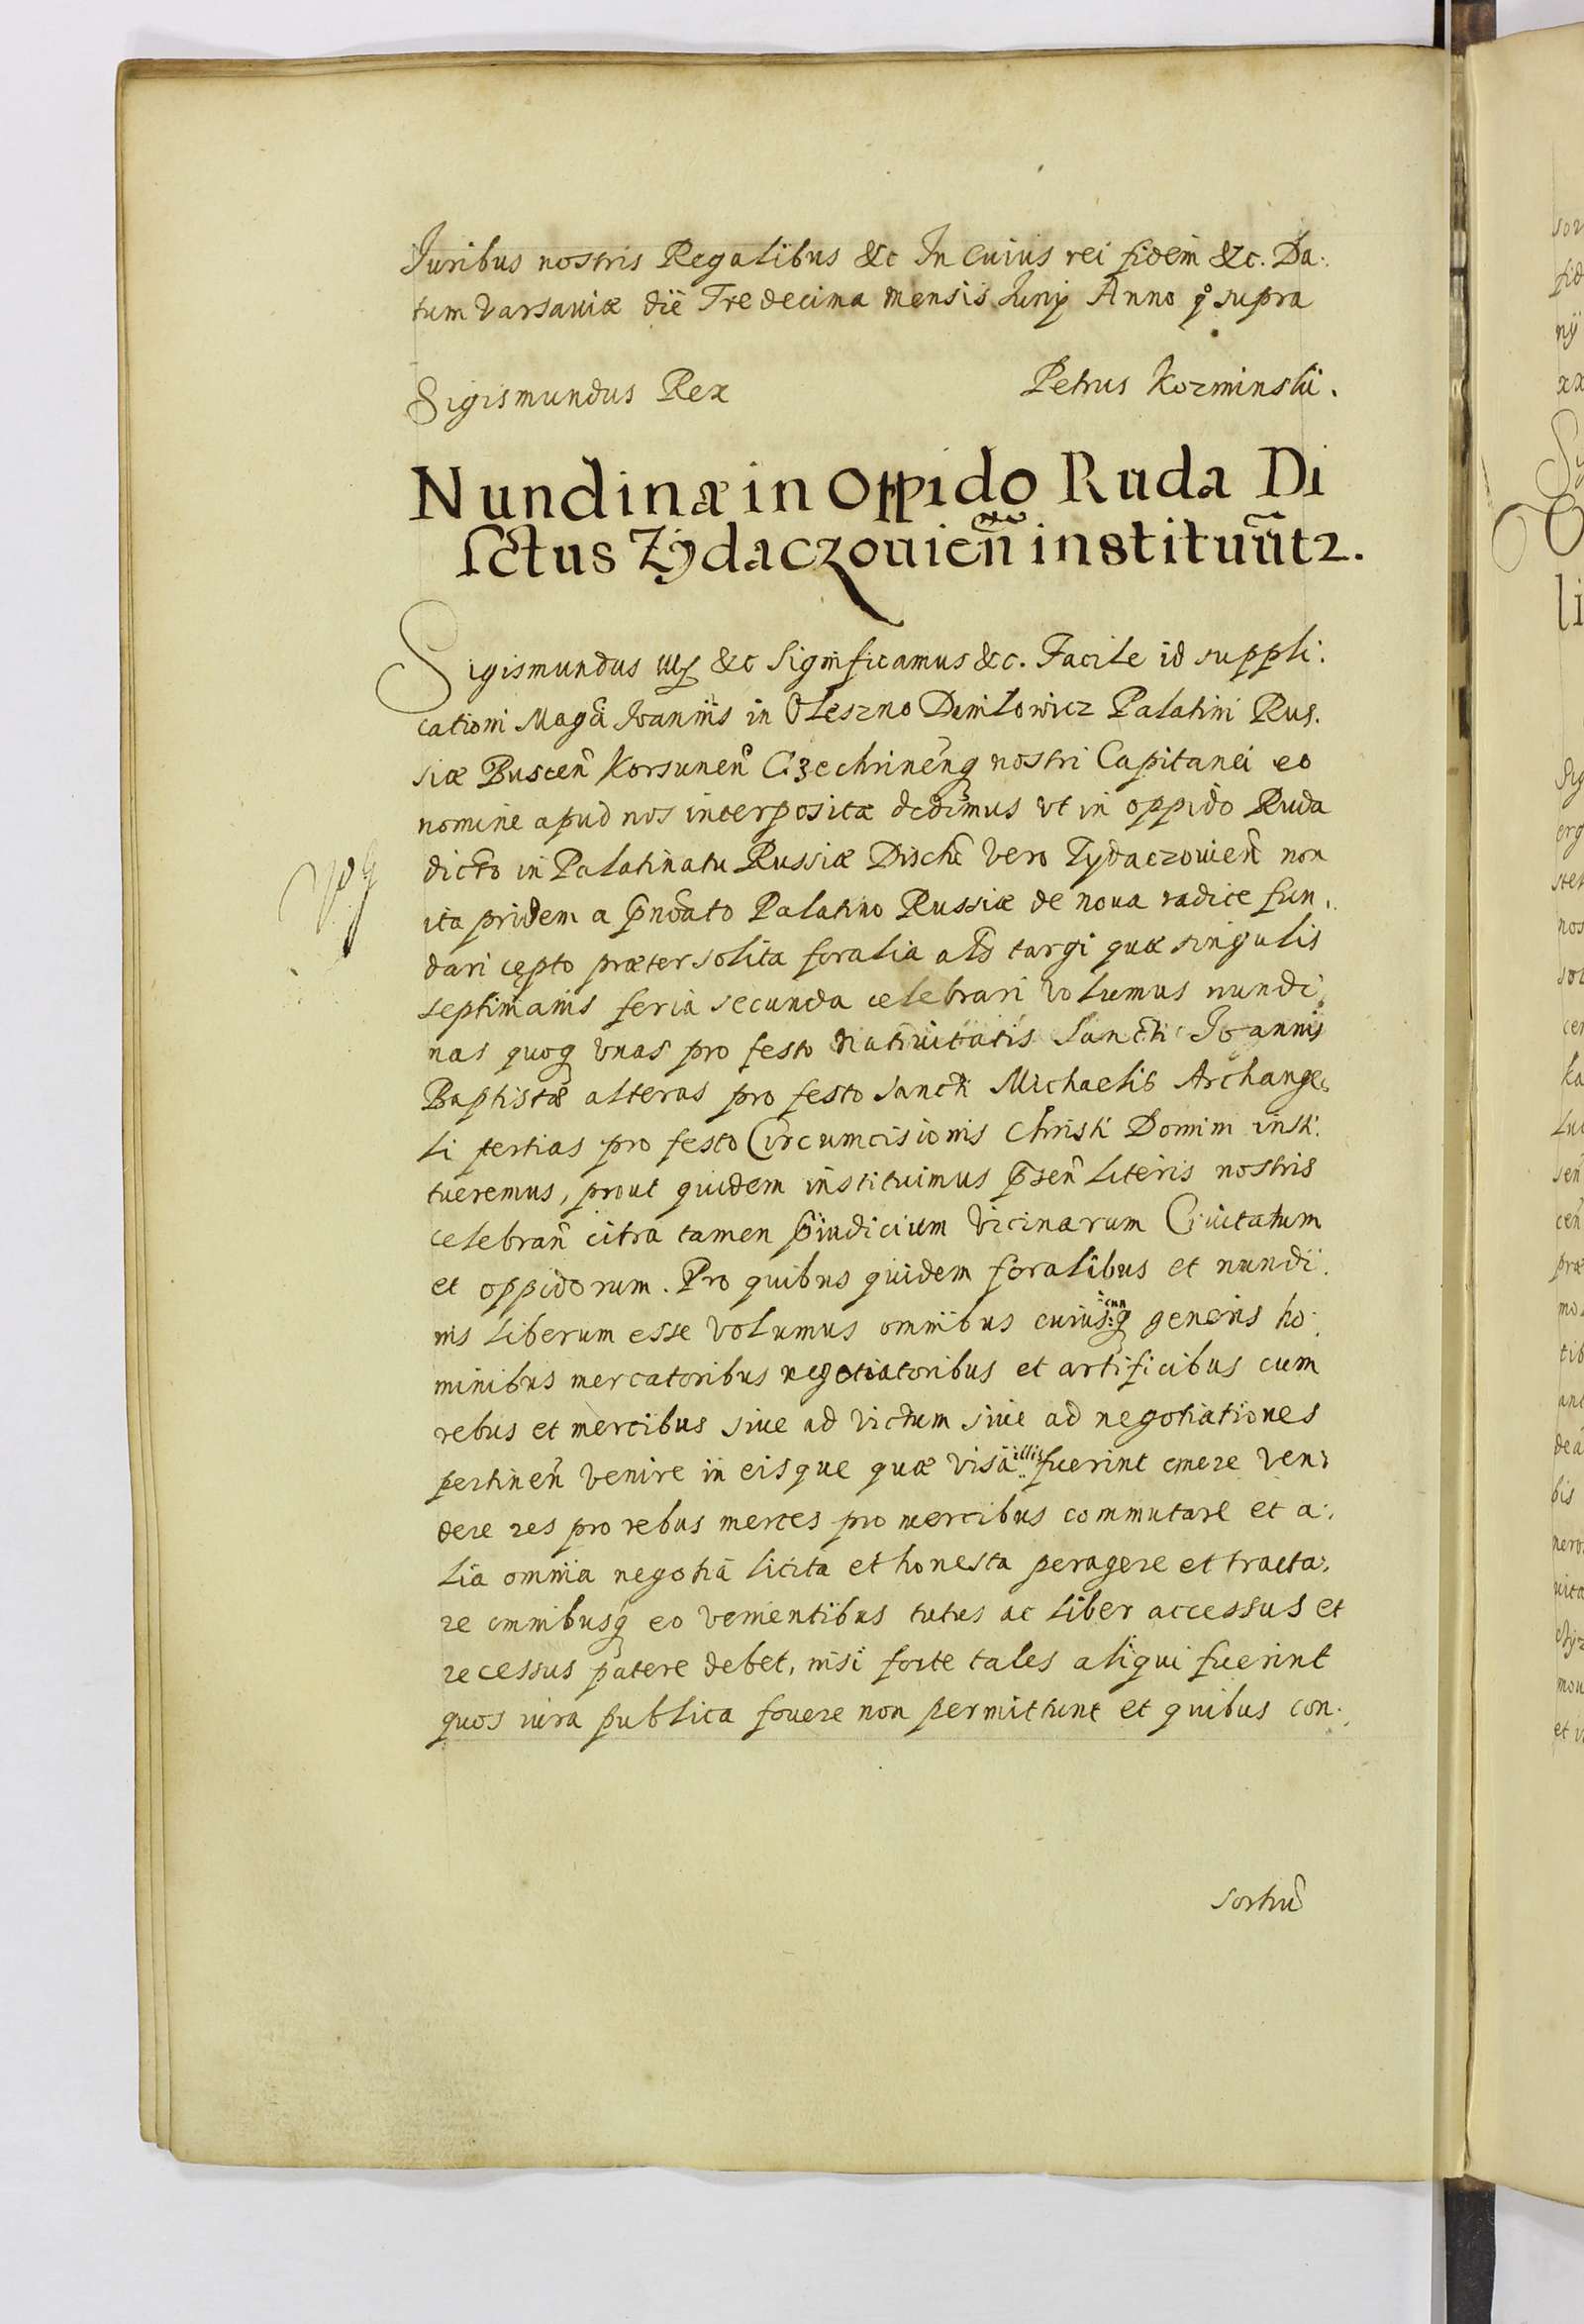 Juribus nostris Regalibus &c In Cuius rei fidem &c. Da:
tum Varsauiæ die Tredecima mensis Junÿ Anno qº supra
Sigismundus Rex
Petrus Kozminski.
Nundinæ in Oppido Ruda Di
sctus Zÿdaczouien̄ instituūtz.
Sigismundus &c Significamus &c. Facile id suppli:
cationi Magci Joannis in Oleszno Danilowicz Palatini Rus.
siæ Buscen̄ Korsunen̄ Czechrinen̄q nostri Capitanei eo
nomine apud nos interpositæ dedimus vt in oppido Ruda
dicto in Palatinatu Russiæ Disctu Vero Zydaczouien̄ non
ita pridem a p̄noāto Palatino Russiæ de noua radice fun,
dari cępto præter solita foralia als targi quæ singulis
septimanis feria secunda celebrari Volumus nundi,
nas quoq vnas pro festo natiuitatis Sancti Joannis
Baptistæ alteras pro festo Sancti Michaelis Archange,
li tertias pro festo Circumcisionis Christi Domini insti:
tueremus, prout quidem instituimus p̄sen̄ literis nostris
celebran̄ citra tamen p̄iudicium Vicinarum Ciuitatum
et oppidorum. Pro quibus quidem foralibus et nundi.
nis liberum esse Volumus omnibus cuius cun q generis ho:
minibus mercatoribus negotiatoribus et artificibus cum
rebus et mercibus siue ad Victum siue ad negotiationes
pertinen̄ Venire in eisque quæ Visa illis fuerint emere Ven:
dere res pro rebus merces pro mercibus commutare et a:
lia omnia negotia licita et honesta peragere et tracta:
re omnibusq eo venientibus tutus ac liber accessus et
recessus patere debet, nisi forte tales aliqui fuerint
quos iura publica fouere non permittunt et quibus con:
sortiū